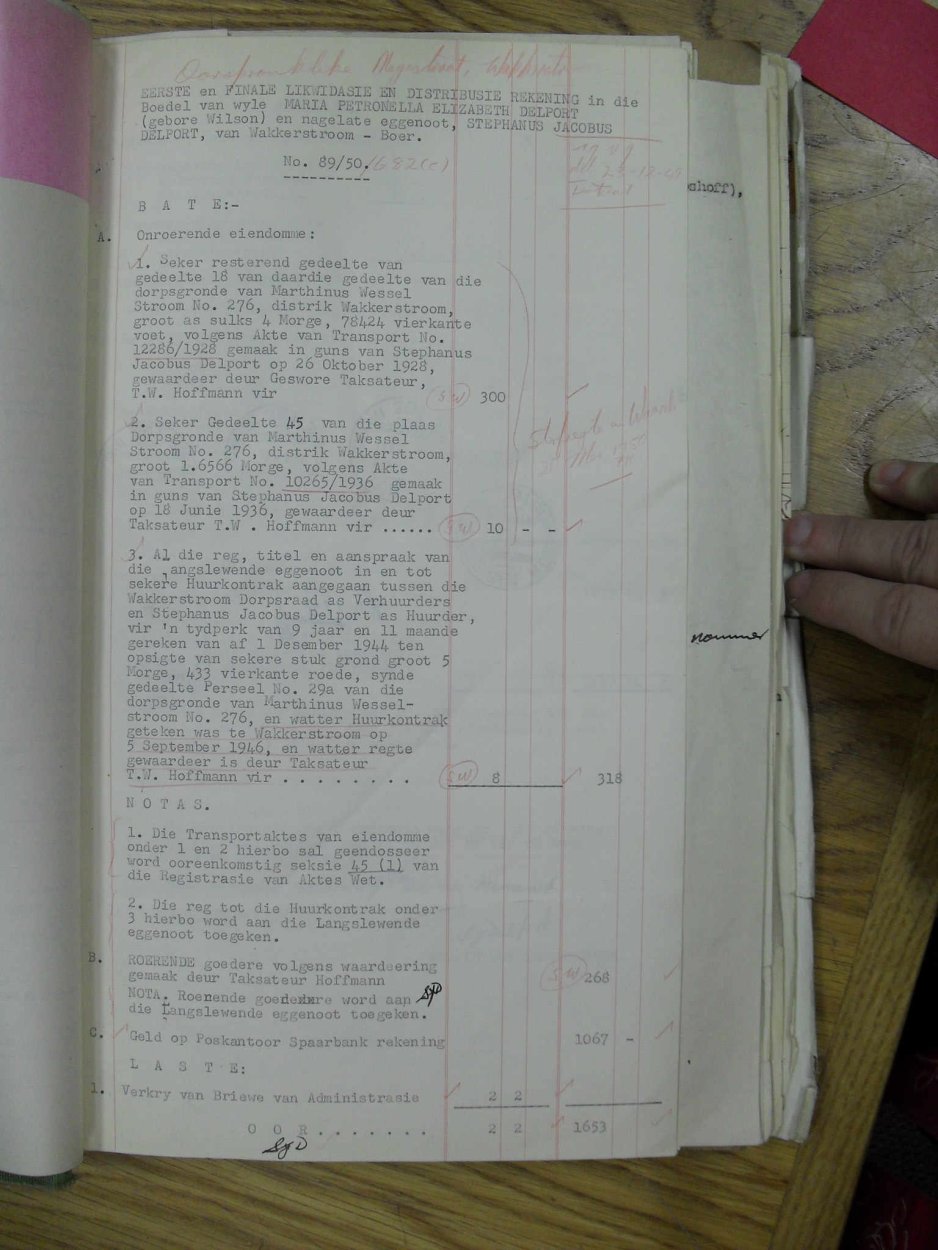 Oorspronklike Magistraat, Wakkerstroom
EERSTE en FINALE LIKWIDASIE EN DISTRIBUSIE REKENING in die
Boedel van wyle MARIA PETRONELLA ELIZABETH DELPORT
(gebore Wilson) en nagelate eggenoot, STEPHANUS JACOBUS
DELPORT, van Wakkerstroom - Boer.
No. 89/50. 1682(e)
oshoff),
B A T E:-
A. Onroerende eiendomme:
1. Seker resterend gedeelte van
gedeelte 18 van daardie gedeelte van die
dorpsgronde van Marthinus Wessel
Stroom No. 276, distrik Wakkerstroom,
groot as sulks 4 Morge, 78424 vierkante
voet, volgens Akte van Transport No.
12286/1928 gemaak in guns van Stephanus
Jacobus Delport op 26 Oktober 1928,
gewaardeer deur Geswore Taksateur,
T.W. Hoffmann vir SW 300
2. Seker Gedeelte 45 van die plaas
Dorpsgronde van Marthinus Wessel
Stroom No. 276, distrik Wakkerstroom,
groot 1.6566 Morge, volgens Akte
van Transport No. 10265/1936 gemaak
in guns van Stephanus Jacobus Delport
op 18 Junie 1936, gewaardeer deur
Taksateur T.W . Hoffmann vir ...... SW 10 - -
3. Al die reg, titel en aanspraak van
die langslewende eggenoot in en tot
sekere Huurkontrak aangegaan tussen die
Wakkerstroom Dorpsraad as Verhuurders
en Stephanus Jacobus Delport as Huurder,
vir 'n tydperk van 9 jaar en 11 maande
gereken van af 1 Desember 1944 ten
opsigte van sekere stuk grond groot 5
Morge, 433 vierkante roede, synde
gedeelte Perseel No. 29a van die
dorpsgronde van Marthinus Wessel-
stroom No. 276, en watter Huurkontrak
geteken was te Wakkerstroom op
5 September 1946, en watter regte
gewaardeer is deur Taksateur
T.W. Hoffmann vir . . . . . . . . SW 8 318
nommer
N O T A S.
1. Die Transportaktes van eiendomme
onder 1 en 2 hierbo sal geendosseer
word ooreenkomstig seksie 45 (1) van
die Registrasie van Aktes Wet.
2. Die reg tot die Huurkontrak onder
3 hierbo word aan die Langslewende
eggenoot toegeken.
B. ROERENDE goedere volgens waardeering
gemaak deur Taksateur Hoffmann SW 268
NOTA. Roerende goedere word aan
die Langslewende eggenoot toegeken.
C. Geld op Poskantoor Spaarbank rekening 1067 -
L A S T E:
1. Verkry van Briewe van Administrasie 2 2
O O R . . . . . . . 2 2 1653